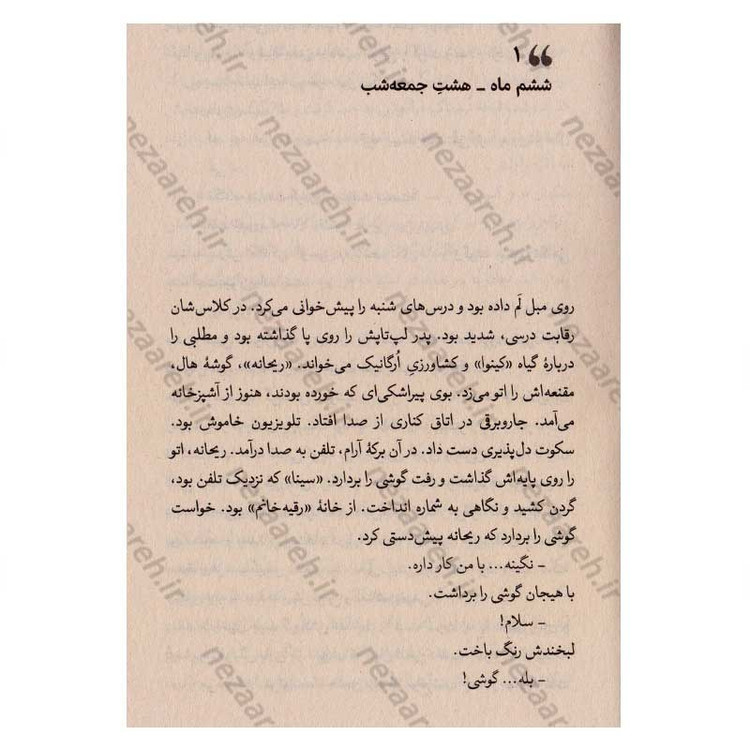 ۱
ششم ماه ـ هشتِ جمعه‌شب
روی مبل لَم داده بود و درس‌های شنبه را پیش‌خوانی می‌کرد. در کلاس‌شان
رقابت درسی، شدید بود. پدر لپ‌تاپش را روی پا گذاشته بود و مطلبی را
دربارهٔ گیاه «کینوا» و کشاورزیِ اُرگانیک می‌خواند. «ریحانه»، گوشهٔ هال،
مقنعه‌اش را اتو می‌زد. بوی پیراشکی‌ای که خورده بودند، هنوز از آشپزخانه
می‌آمد. جاروبرقی در اتاق کناری از صدا افتاد. تلویزیون خاموش بود.
سکوت دل‌پذیری دست داد. در آن برکهٔ آرام، تلفن به صدا درآمد. ریحانه، اتو
را روی پایه‌اش گذاشت و رفت گوشی را بردارد. «سینا» که نزدیک تلفن بود،
گردن کشید و نگاهی به شماره انداخت. از خانهٔ «رقیه‌خانم» بود. خواست
گوشی را بردارد که ریحانه پیش‌دستی کرد.
- نگینه... با من کار داره.
با هیجان گوشی را برداشت.
- سلام!
لبخندش رنگ باخت.
- بله... گوشی!
nezaareh.ir